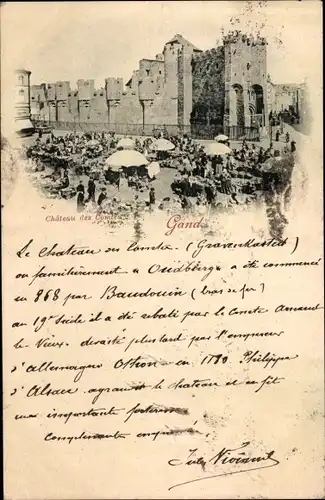 Château des Comtes
Gand
Le Chateau des Comte (Gravenkasteel)
ou familièrement Oudburg a été commencé
en 868 par Baudouin (bras de fer)
au siècle il a été rebati par le Comte Arnaud
le Vieux. devasté plus tard par l'empereur
d'allemagne Othon - en Philippe
d'Alsace agrandit le chateau et en fit
une importante forteresse
complement
Jules